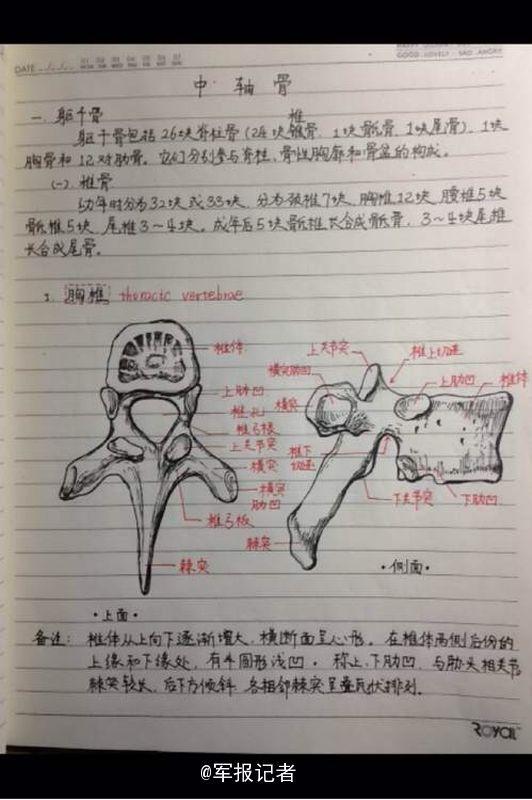 DATE
01 02 03 04 05 06 07
MON TUE WED THU FRI SAT SUN
GOOD · LOVELY · SAD · ANGRY
中 轴 骨
一、躯干骨
椎
躯干骨包括26块脊柱骨(24块锥骨、1块骶骨、1块尾骨)、1块
胸骨和12对肋骨。它们分别参与脊柱、骨性胸廓和骨盆的构成。
(一)椎骨
幼年时分为32块或33块,分为颈椎7块,胸椎12块,腰椎5块
骶椎5块,尾椎3~4块。成年后5块骶椎长合成骶骨,3~4块尾椎
长合成尾骨。
胸椎 thoracic vertebrae
椎体
上肋凹
椎孔
椎弓根
上关节突
横突
横突
肋凹
椎弓板
棘突
·上面·
上关节突
椎上切迹
横突肋凹
上肋凹
椎体
横突
椎下
切迹
下关节突
下肋凹
棘突
·侧面·
备注: 椎体从上向下逐渐增大,横断面呈心形。在椎体两侧后份的
上缘和下缘处,有半圆形浅凹,称上、下肋凹,与肋头相关节
棘突较长,后下方倾斜,各相邻棘突呈叠瓦状排列.
ROYAL
@军报记者